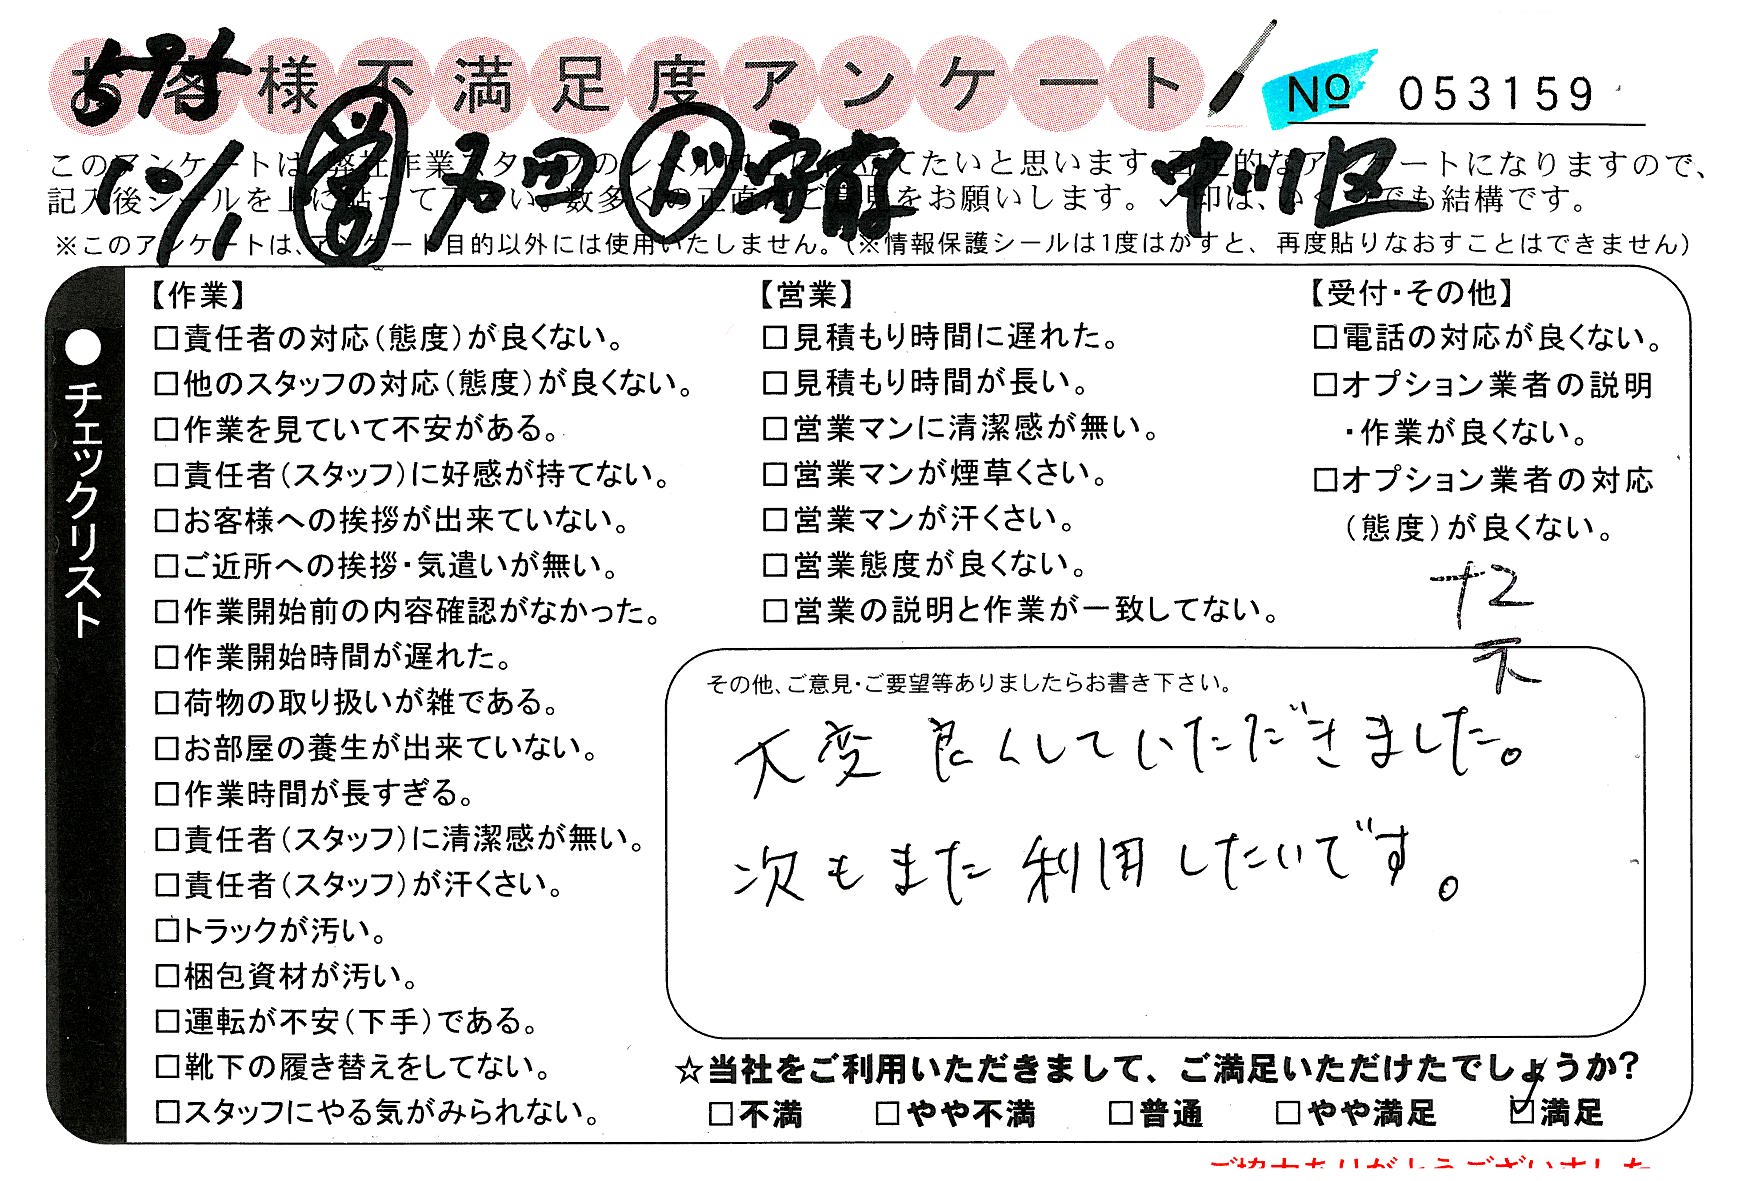 お客様不満足度アンケート
No 053159
12/1 営 戸田 ド 安藤 中川区
このアンケートは、弊社作業スタッフのレベル向上に役立てたいと思います。否定的なアンケートになりますので、
記入後シールを上に貼って下さい。数多くの正直なご意見をお願いします。✓印は、いくつでも結構です。
※このアンケートは、アンケート目的以外には使用いたしません。(※情報保護シールは1度はがすと、再度貼りなおすことはできません)
●チェックリスト
【作業】
□責任者の対応(態度)が良くない。
□他のスタッフの対応(態度)が良くない。
□作業を見ていて不安がある。
□責任者(スタッフ)に好感が持てない。
□お客様への挨拶が出来ていない。
□ご近所への挨拶・気遣いが無い。
□作業開始前の内容確認がなかった。
□作業開始時間が遅れた。
□荷物の取り扱いが雑である。
□お部屋の養生が出来ていない。
□作業時間が長すぎる。
□責任者(スタッフ)に清潔感が無い。
□責任者(スタッフ)が汗くさい。
□トラックが汚い。
□梱包資材が汚い。
□運転が不安(下手)である。
□靴下の履き替えをしてない。
□スタッフにやる気がみられない。
【営業】
□見積もり時間に遅れた。
□見積もり時間が長い。
□営業マンに清潔感が無い。
□営業マンが煙草くさい。
□営業マンが汗くさい。
□営業態度が良くない。
□営業の説明と作業が一致してない。
【受付・その他】
□電話の対応が良くない。
□オプション業者の説明
・作業が良くない。
□オプション業者の対応
(態度)が良くない。
+2
その他、ご意見・ご要望等ありましたらお書き下さい。
大変良くしていただきました。
次もまた利用したいです。
☆当社をご利用いただきまして、ご満足いただけたでしょうか?
□不満 □やや不満 □普通 □やや満足 ☑満足
ご協力ありがとうございました